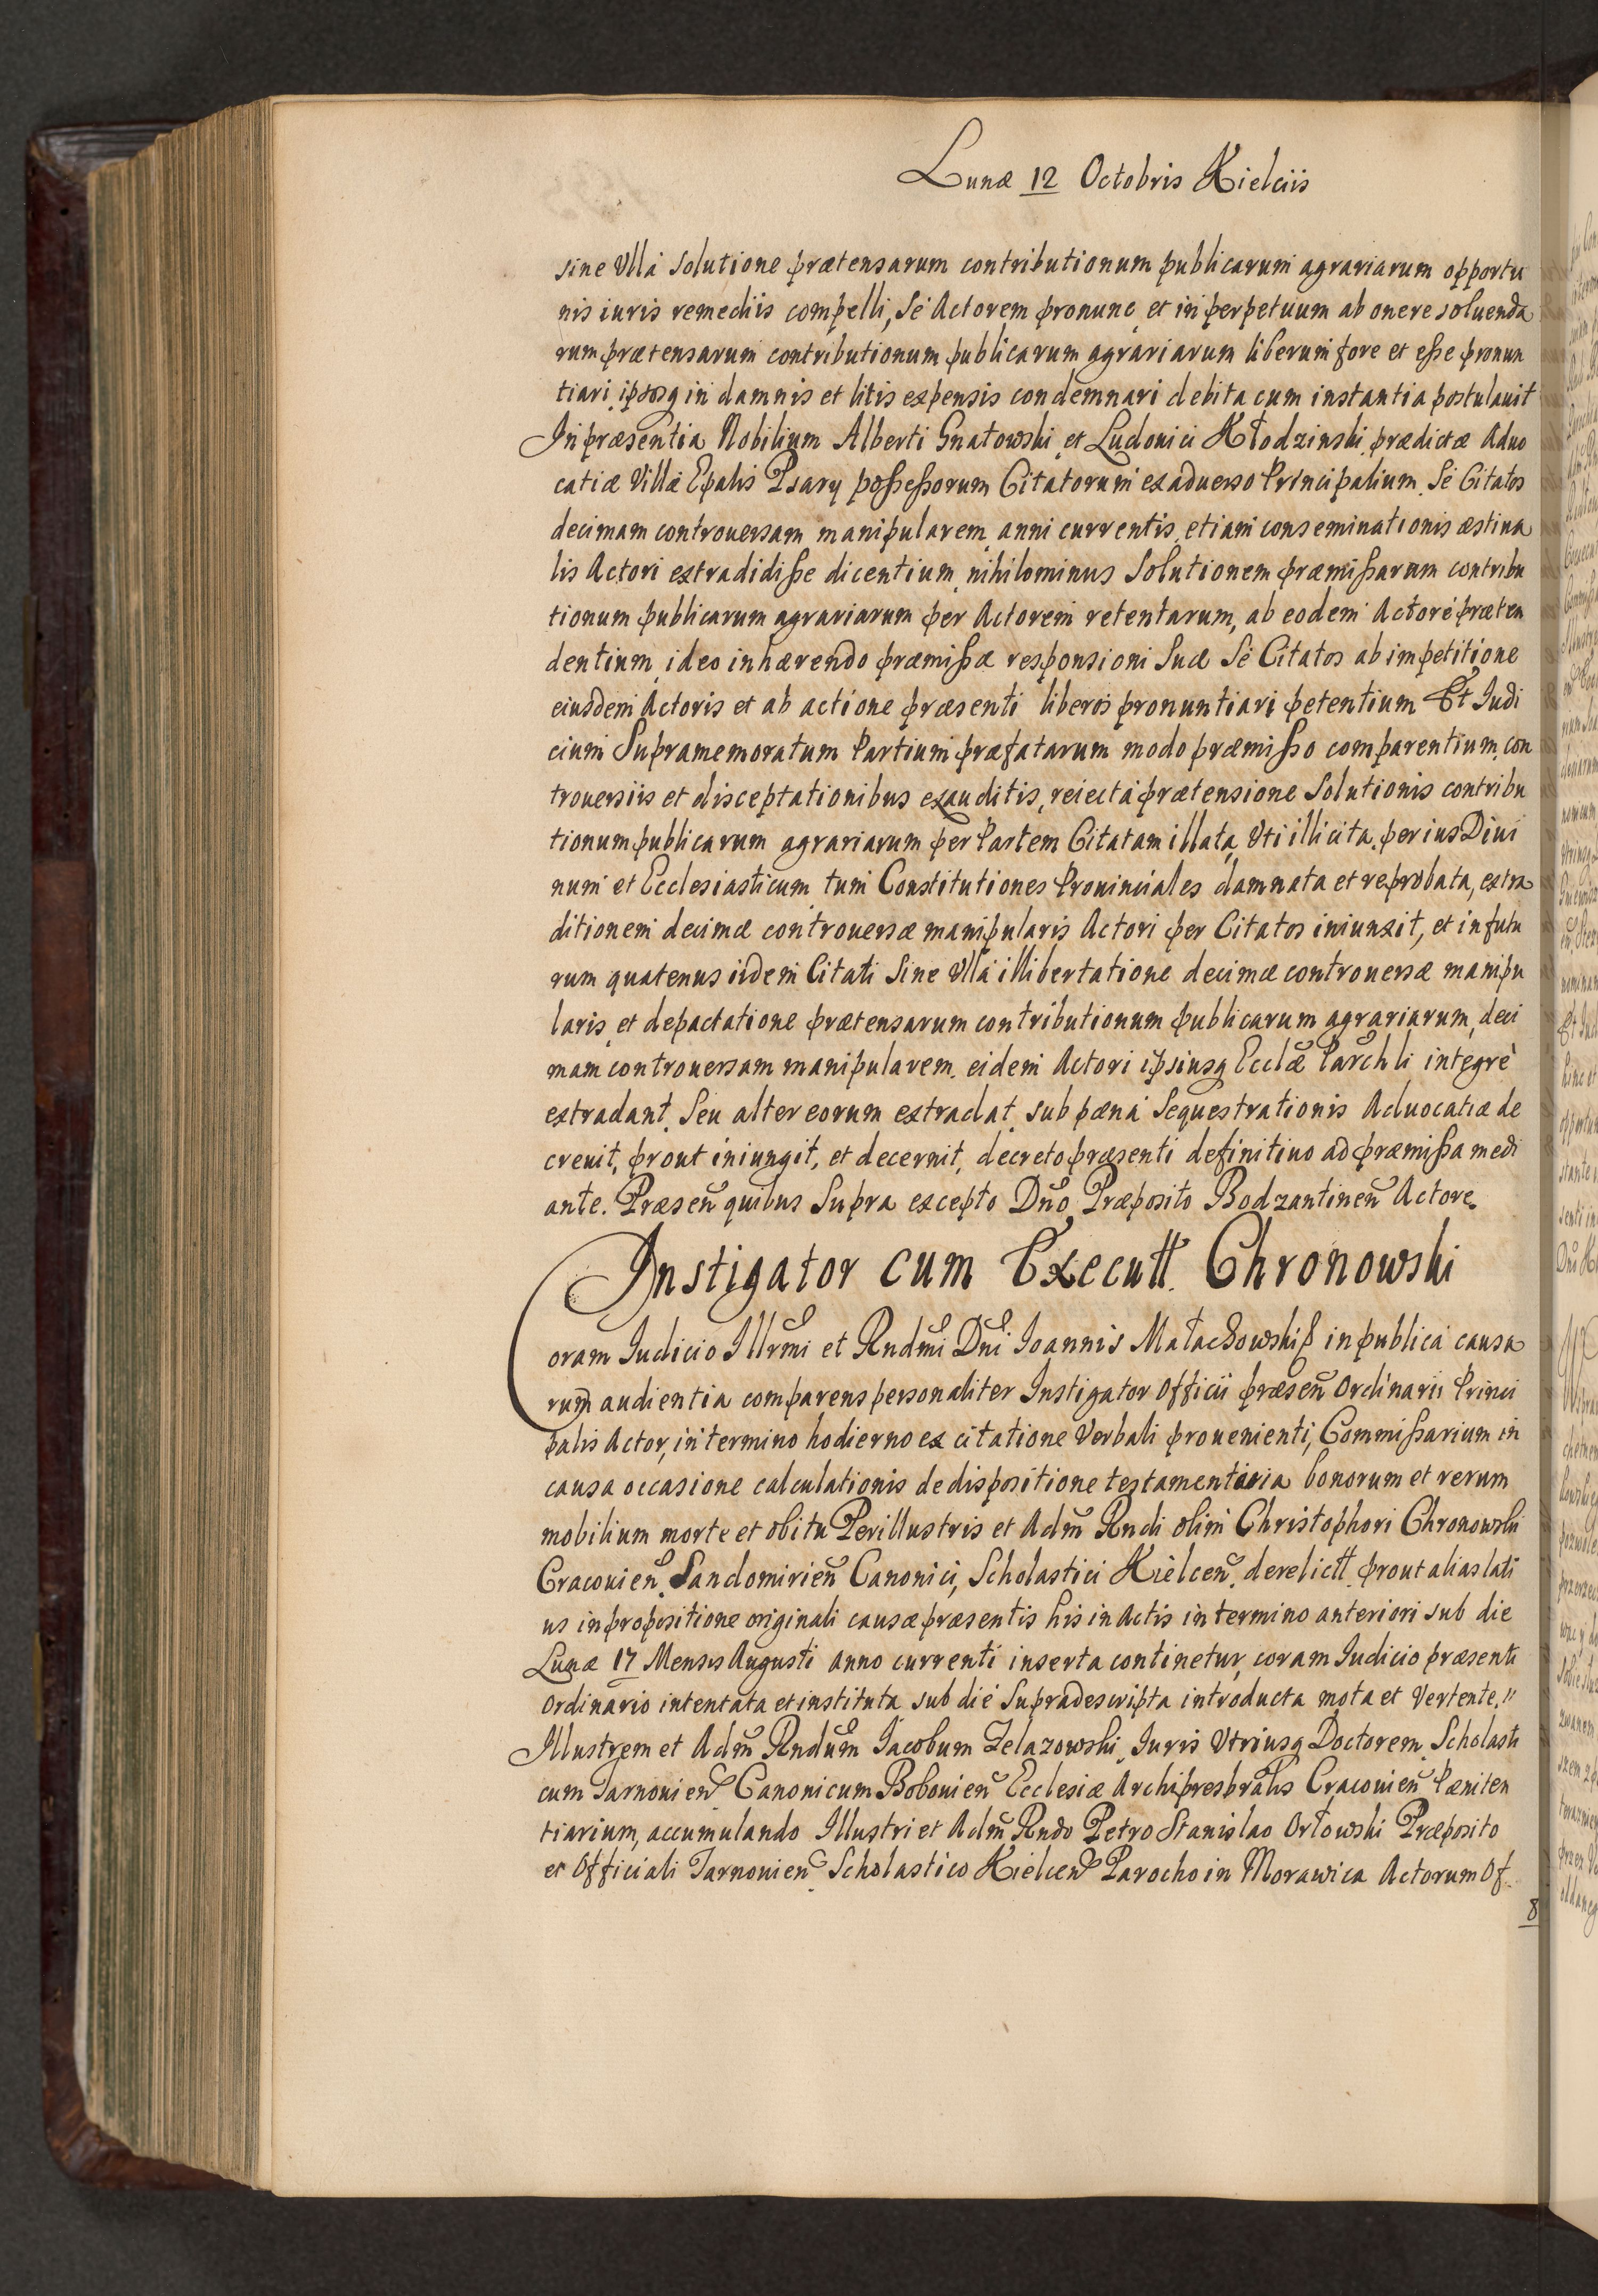 Lunæ 12 Octobris Kielciis
sine Vllá solutione prætensarum contributionum publicarum agrariarum opportu
nis iuris remediis compelli, Sé Actorem pronunc et in perpetuum ab onere soluenda
rum prætensarum contributionum publicarum agrariarum liberum fore et eße pronun
tiari ipsosq in damnis et litis expensis condemnari debita cum instantia postulauit
In præsentia Nobilium Alberti Gnatowski et Ludouici Kłodzinski prædictæ Aduo
catiæ Villæ Epalis Psary poßeßorum Citatorum ex aduerso Principalium Sé Citatos
decimam controuersam manipularem anni currentis, etiam conseminationis æstiua
lis Actori extradidiße dicentium nihilominus Solutionem præmißarum contribu
tionum publicarum agrariarum per Actorem retentarum, ab eodem Actoré præten
dentium ideo inhærendo præmißæ responsioni Suæ Sé Citatos ab impetitione
eiusdem Actoris et ab actione præsenti liberos pronuntiari petentium Et Judi
cium Supramemoratum Partium præfatarum modo præmißo comparentium con
trouersiis et disceptationibus exauditis, reiectá prætensione Solutionis contribu
tionum publicarum agrariarum per Partem Citatam illata Vti illicita per ius Diui
num et Ecclesiasticum tum Constitutiones Prouinciales damnata et reprobata, extra
ditionem decimæ controuersæ manipularis Actori per Citatos iniunxit, et in futu
rum quatenus iidem Citati Sine Vllá illibertatione decimæ controuersæ manipu
laris et depactatione prætensarum contributionum publicarum agrariarum, deci
mam controuersam manipularem eidem Actori ipsiusq Ecclæ Parchli integrè
extradant Seu alter eorum extradat sub pœná Sequestrationis Aduocatiæ de
creuit, prout iniungit, et decernit, decreto præsenti definitiuo ad præmißa medi
ante. Præsen̄ quibus Supra excepto Dno Præposito Bodzantinen̄ Actore.
Instigator cum Executt. Chronowski
Coram Judicio Illrmi et Rndmi Dni Joannis Małachowski ß in publicá causa
rum audientia comparens personaliter Instigator Officii præsen̄ Ordinarii Princi
palis Actor, in termino hodierno ex citatione Verbali prouenienti, Commißarium in
causa occasione calculationis de dispositione testamentaria bonorum et rerum
mobilium morte et obitu Perillustris et Adm̄ Rndi olim Christophori Chronowski
Cracouien̄ Sandomirien̄ Canonici, Scholastici Kielcen̄. derelictt. prout alias lati
us in propositione originali causæ præsentis his in Actis in termino anteriori sub die
Lunæ 17 Mensis Augusti anno currenti inserta continetur, coram Judicio præsenti
Ordinario intentata et instituta sub dié Supradescripta introducta mota et Vertente,
Illustrem et Adm̄ Rndum Jacobum Zelazowski Juris Vtriusq Doctorem Scholasti
cum Tarnouien̄ Canonicum Bobouien̄ Ecclesiæ Archipresbralis Cracouien̄ Pæniten
tiarium, accumulando Illustri et Adm̄ Rndo Petro Stanislao Orłowski Præposito
et Officiali Tarnouien̄ Scholastico Kielcen̄ Parocho in Morawica Actorum Of
8